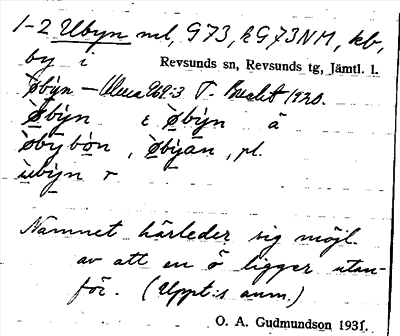 1-2 Ubyn ml, G73, kG73NM, kb,
by i Revsunds sn, Revsunds tg, Jämtl. l.
øbyn – Ulleca 269:3 T. Bucht 1920.
øbyn ε øbyn ä
øbybøn, øbyan, pl.
ubyn r
Namnet härleder sig möjl.
av att en ö ligger utan-
för. (Uppt:s anm.)
O. A. Gudmundson 1931.